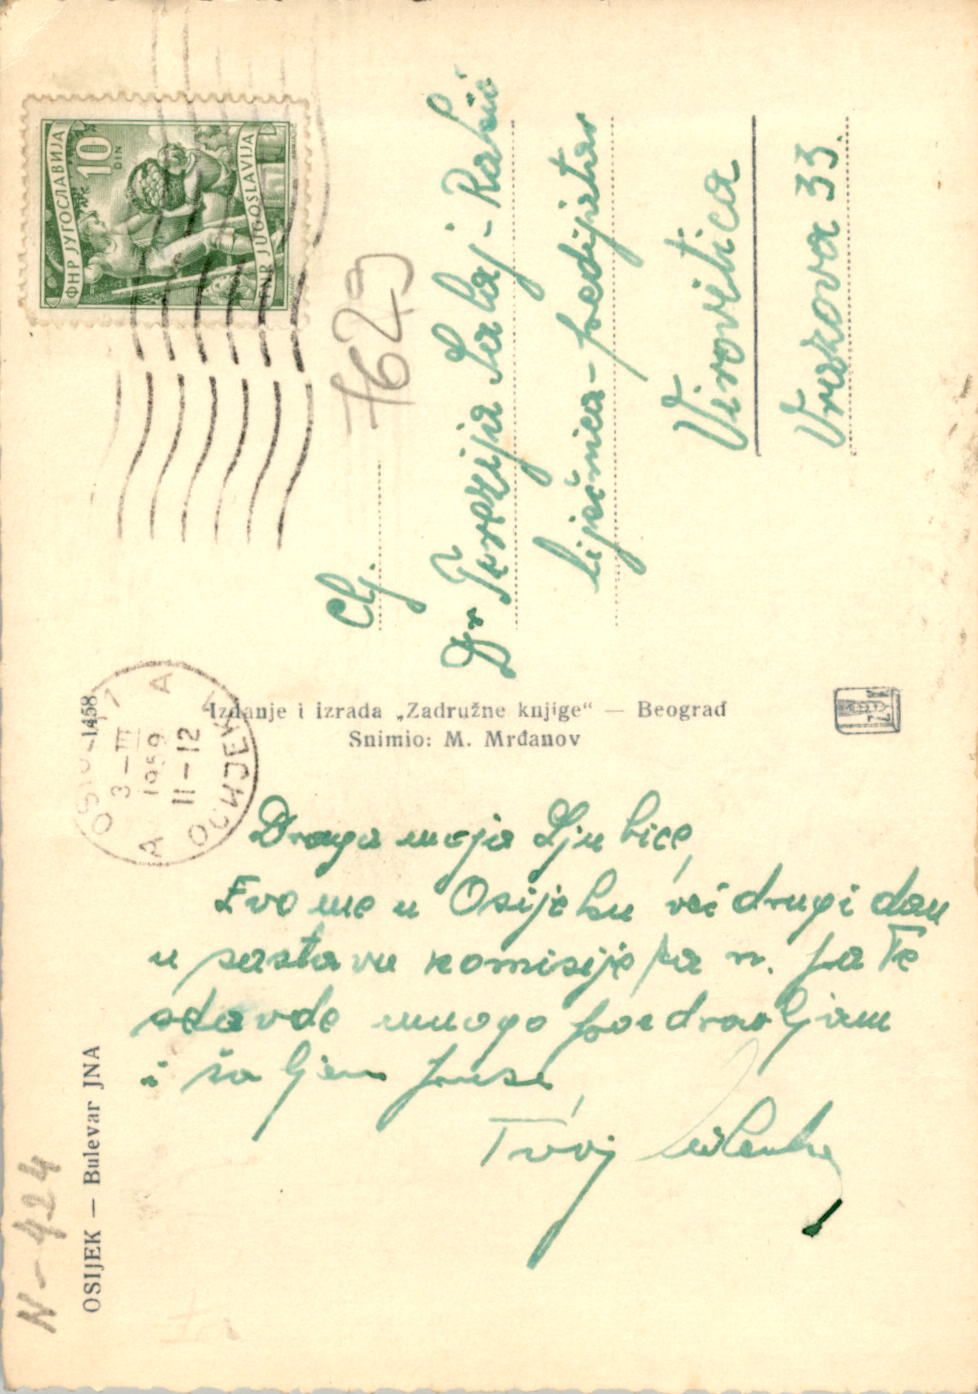 ФНР ЈУГОСЛАВИЈА
10
DIN
FNR JUGOSLAVIJA
7623
Clj.
Dr Terezija Salaj-Rakić
liječnica-pedijatar
Virovitica
Vrazova 33.
1458
3-III
1959
11-12
A A
ОСИЈЕК
Izdanje i izrada „Zadružne knjige“ — Beograd
Snimio: M. Mrđanov
Draga moja Ljubice,
Evo me u Osijeku već drugi dan
u sastavu komisije za n. pa Te
odavde mnogo pozdravljam
i šaljem puse
Tvoj
OSIJEK — Bulevar JNA
N-424